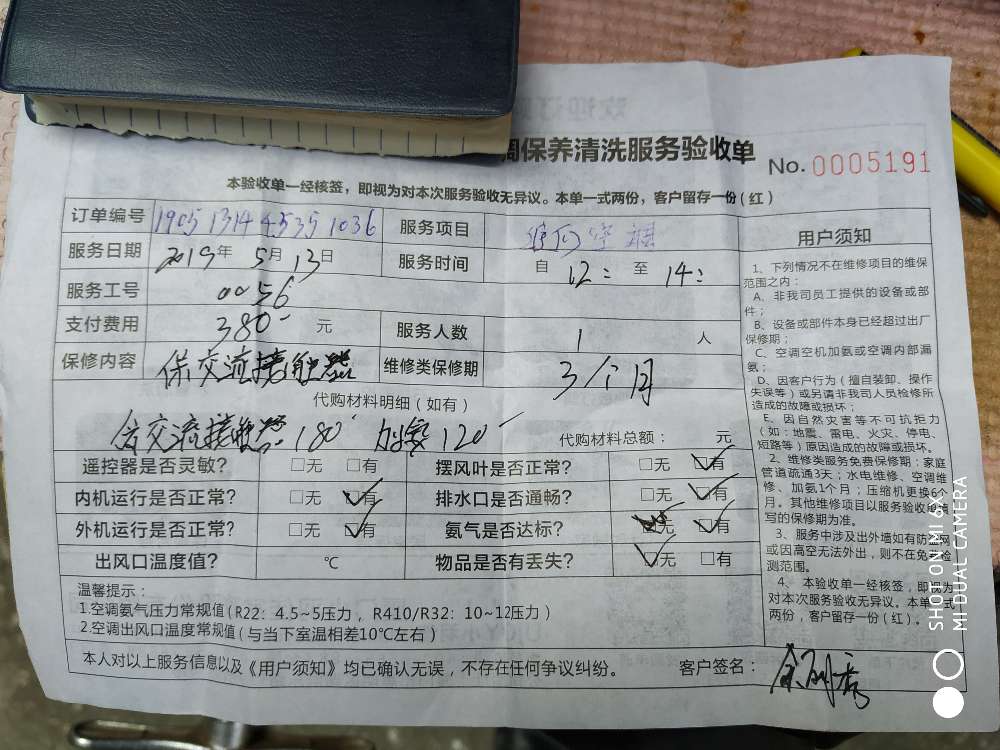 调保养清洗服务验收单 No.0005191
本验收单一经核签，即视为对本次服务验收无异议。本单一式两份，客户留存一份(红)
订单编号 1905 1314 4535 1036 服务项目
服务日期 2019年 5月 13日 服务时间 自 12: 至 14:
服务工号 0056
支付费用 380- 元 服务人数 1 人
保修内容 保交流接触器 维修类保修期 3个月
代购材料明细（如有）
交流接触器 180 120- 代购材料总额： 元
遥控器是否灵敏? □无 □有 摆风叶是否正常? □无 □有
内机运行是否正常? □无 □有 排水口是否通畅? □无 □有
外机运行是否正常? □无 □有 氨气是否达标? □无 □有
出风口温度值? ℃ 物品是否有丢失? □无 □有
温馨提示：
1.空调氨气压力常规值(R22：4.5~5压力，R410/R32：10~12压力)
2.空调出风口温度常规值(与当下室温相差10℃左右)
本人对以上服务信息以及《用户须知》均已确认无误，不存在任何争议纠纷。 客户签名：
用户须知
1、下列情况不在维修项目的维保
范围之内：
A、非我司员工提供的设备或部
件；
B、设备或部件本身已经超过出厂
保修期；
C、空调空机加氨或空调内部漏
氨；
D、因客户行为（擅自装卸、操作
失误等）或另请非我司人员检修所
造成的故障或损坏；
E、因自然灾害等不可抗拒力
（如：地震、雷电、火灾、停电、
短路等）原因造成的故障或损坏。
2、维修类服务免费保修期：家庭
管道疏通3天；水电维修、空调维
修、加氨1个月；压缩机更换6个
月。其他维修项目以服务验收单填
写的保修期为准。
3、服务中涉及出外墙如有防盗网
或因高空无法外出，则不在免费检
测范围。
4、本验收单一经核签，即视为
对本次服务验收无异议。本单一式
两份，客户留存一份(红)。
SHOT ON MI 6X
MI DUAL CAMERA